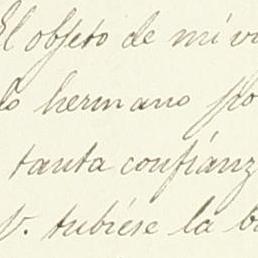 El objeto de mi
hermano
tanta confianz
V. tubiése la